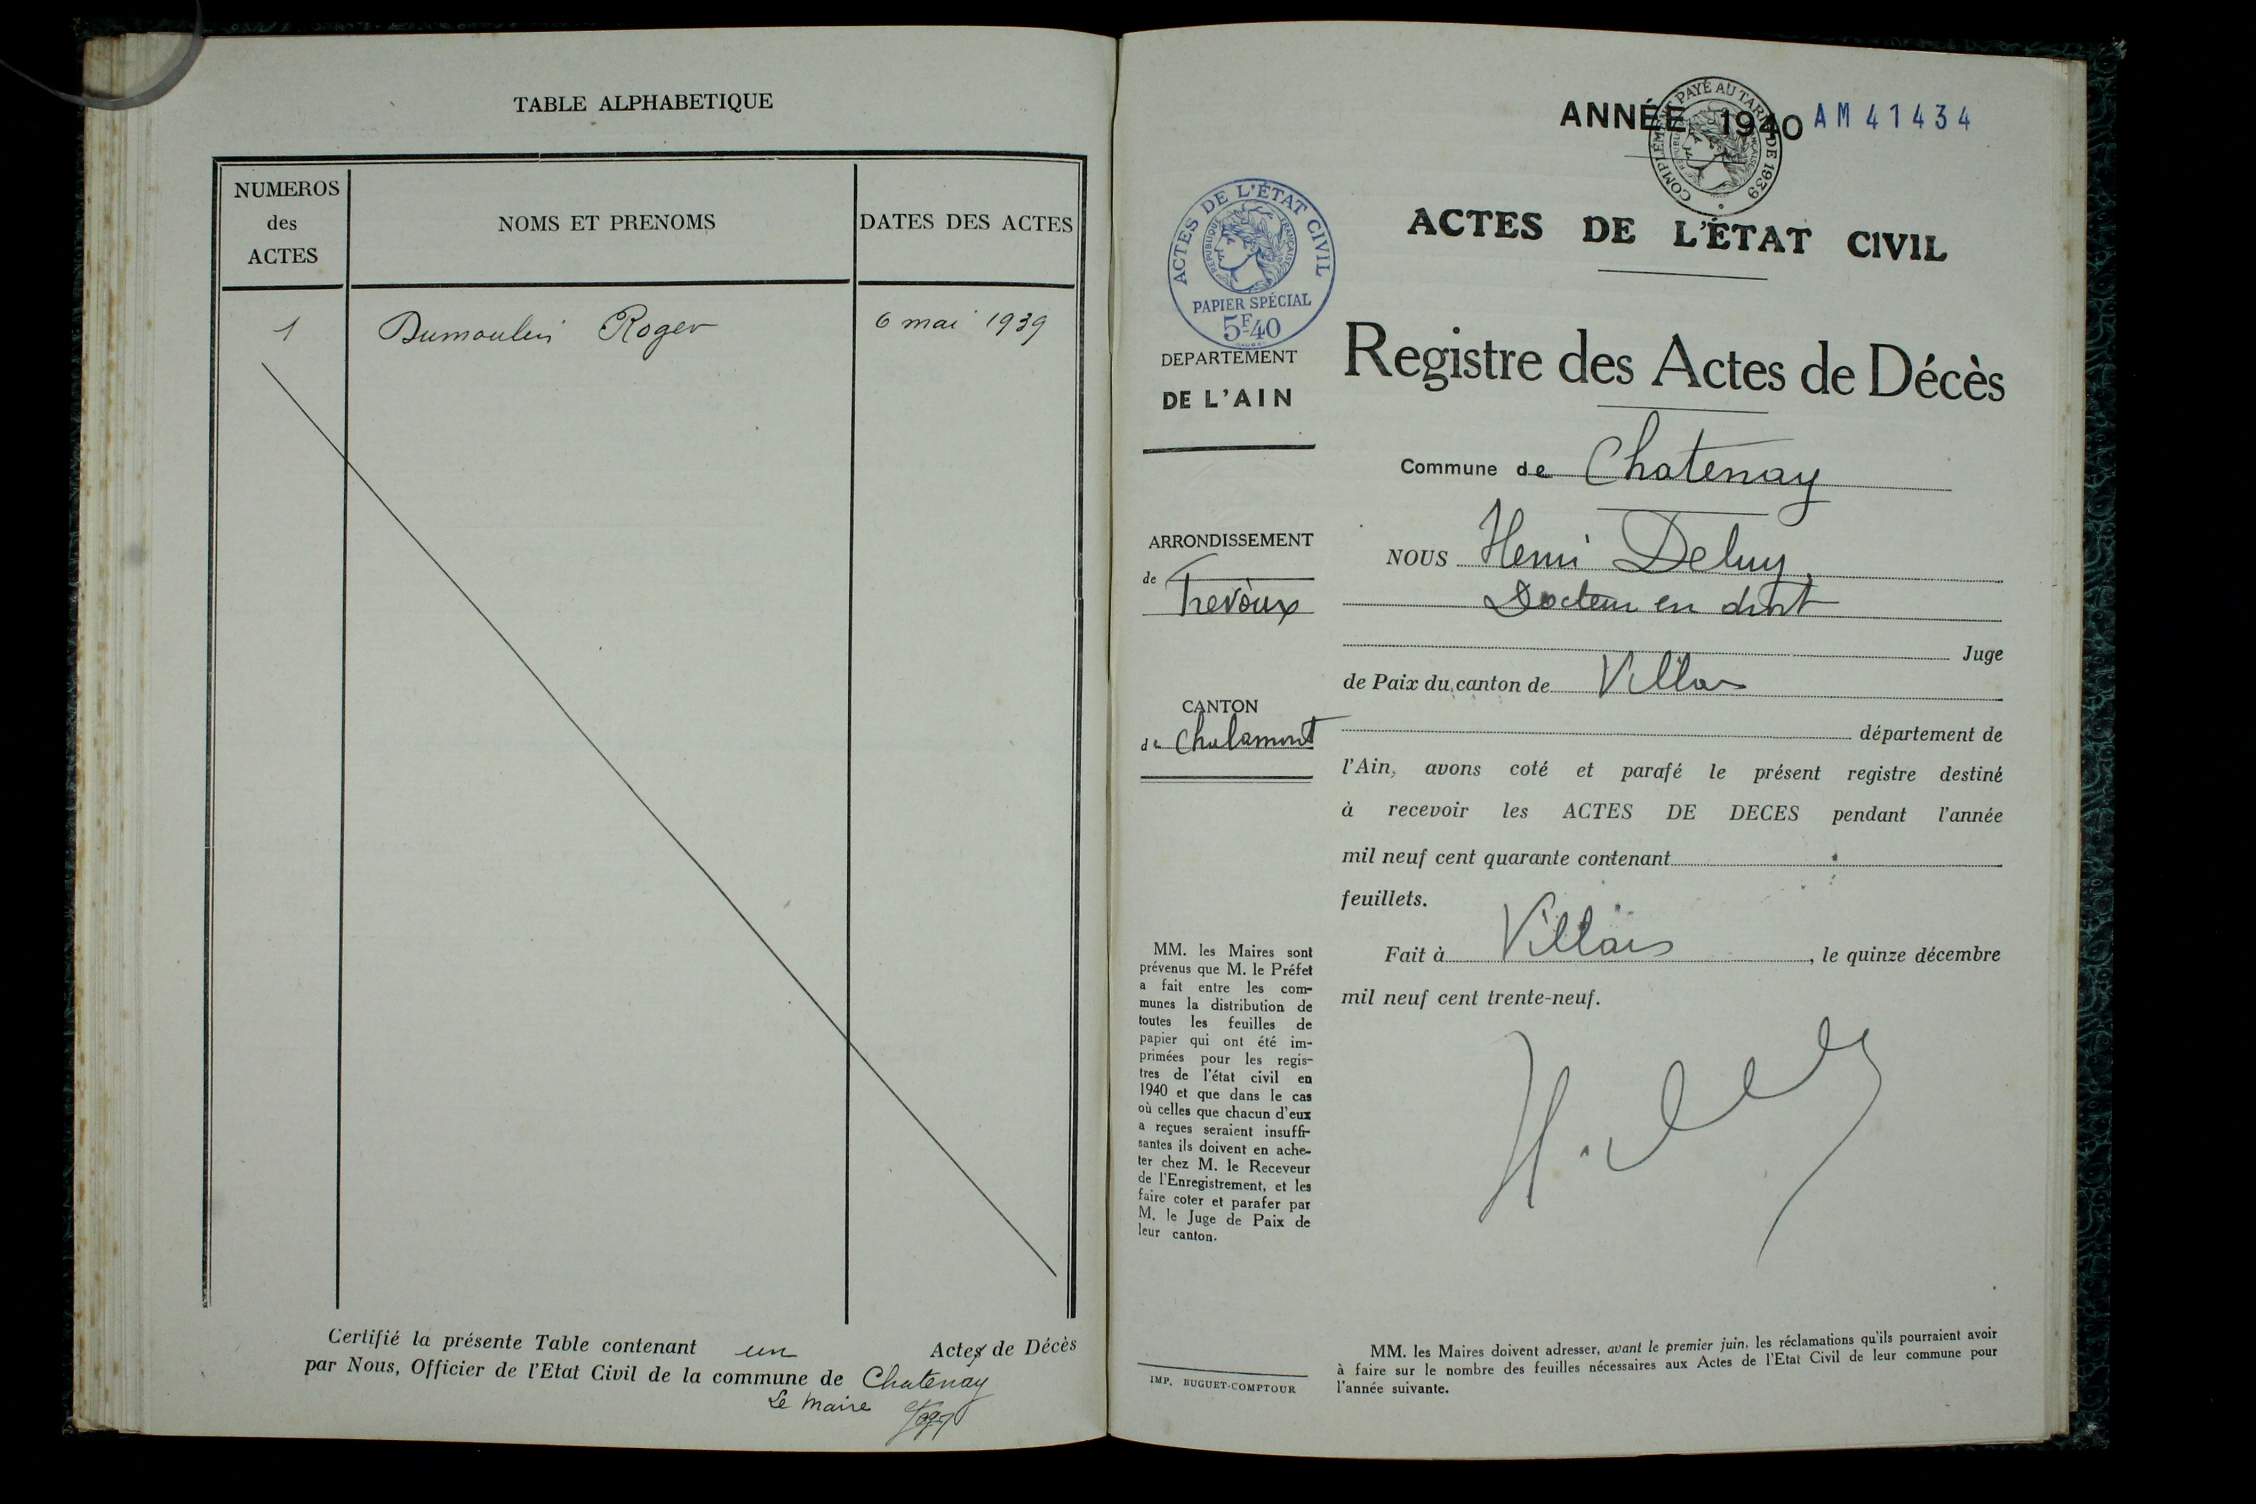 TABLE ALPHABETIQUE
NUMEROS
des
ACTES
NOMS ET PRENOMS
DATES DES ACTES
1 Dumoulin Roger 6 mai 1939
Certifié la présente Table contenant un Actes de Décès
par Nous, Officier de l'Etat Civil de la commune de Chatenay
Le Maire
ANNÉE 1940
AM 41434
COMPLÉMENT PAYÉ AU TARIF DE 1939
ACTES DE L'ÉTAT CIVIL
RÉPUBLIQUE FRANÇAISE
PAPIER SPÉCIAL
5F40
ACTES DE L'ÉTAT CIVIL
DEPARTEMENT
DE L'AIN
ARRONDISSEMENT
de Trevoux
CANTON
de Chalamont
MM. les Maires sont
prévenus que M. le Préfet
a fait entre les com-
munes la distribution de
toutes les feuilles de
papier qui ont été im-
primées pour les regis-
tres de l'état civil en
1940 et que dans le cas
où celles que chacun d'eux
a reçues seraient insuffi-
santes ils doivent en ache-
ter chez M. le Receveur
de l'Enregistrement, et les
faire coter et parafer par
M. le Juge de Paix de
leur canton.
IMP. BUGUET-COMPTOUR
Registre des Actes de Décès
Commune de Chatenay
NOUS Henri Deluy,
Docteur en droit
Juge
de Paix du canton de Villars
département de
l'Ain, avons coté et parafé le présent registre destiné
à recevoir les ACTES DE DECES pendant l'année
mil neuf cent quarante contenant
feuillets.
Fait à Villars, le quinze décembre
mil neuf cent trente-neuf.
MM. les Maires doivent adresser, avant le premier juin, les réclamations qu'ils pourraient avoir
à faire sur le nombre des feuilles nécessaires aux Actes de l'Etat Civil de leur commune pour
l'année suivante.